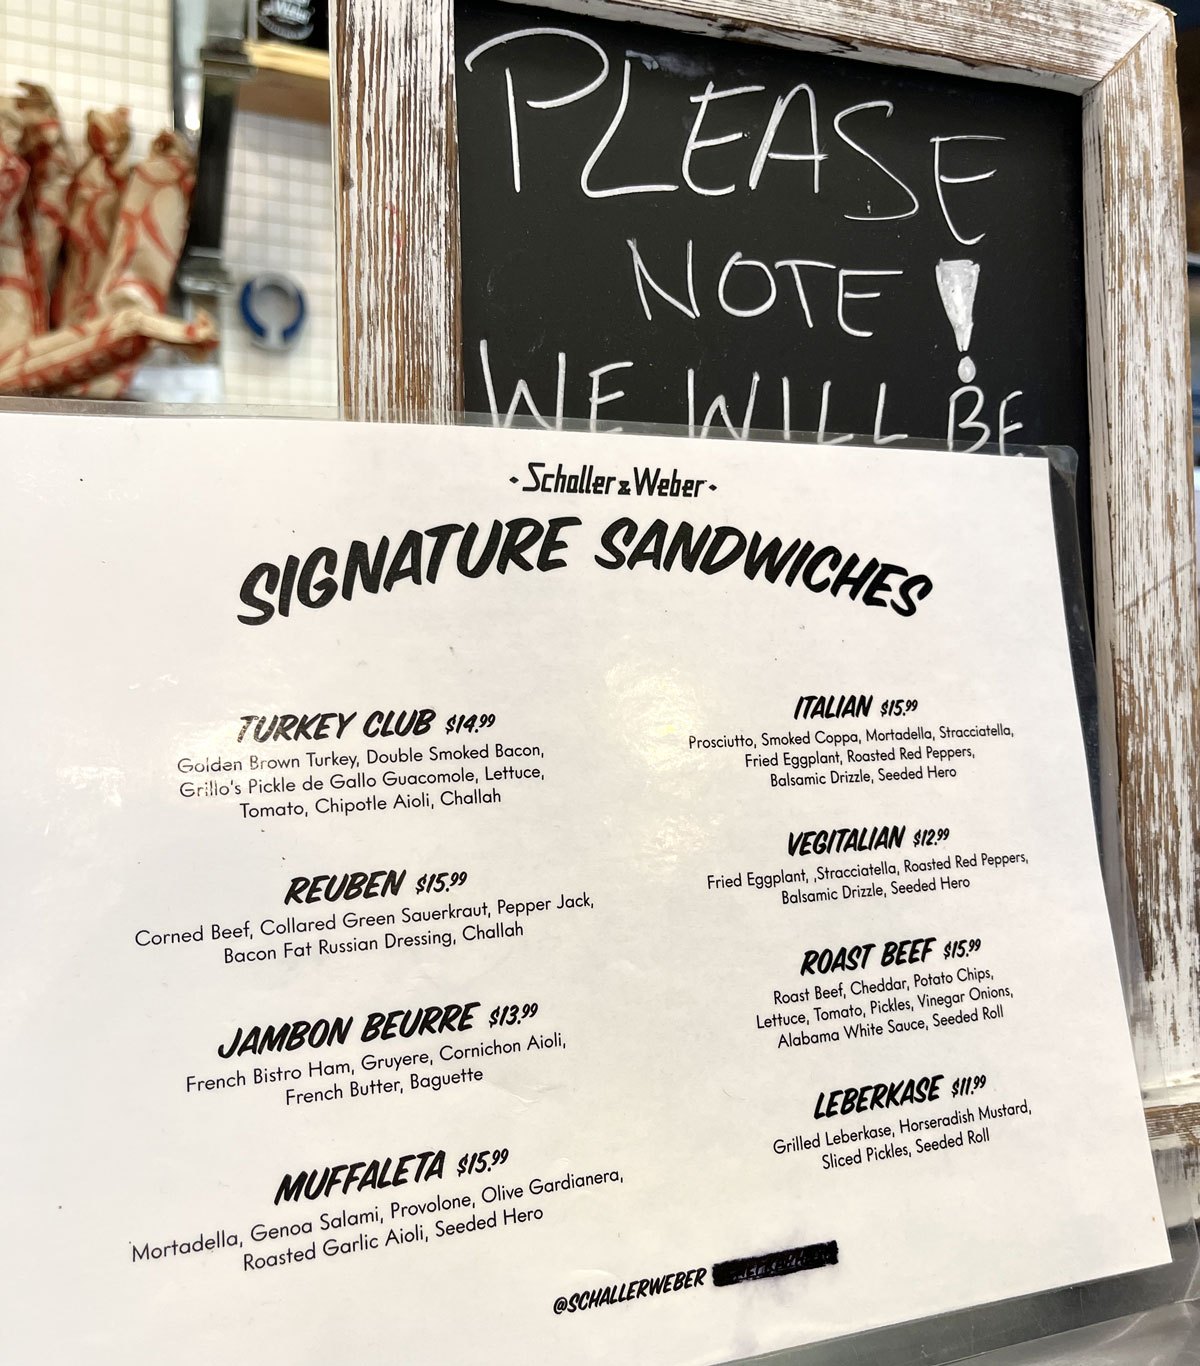 PLEASE
NOTE!
WE WILL BE
Schaller & Weber
SIGNATURE SANDWICHES
TURKEY CLUB $14.99
Golden Brown Turkey, Double Smoked Bacon,
Grillo's Pickle de Gallo Guacomole, Lettuce,
Tomato, Chipotle Aioli, Challah
REUBEN $15.99
Corned Beef, Collared Green Sauerkraut, Pepper Jack,
Bacon Fat Russian Dressing, Challah
JAMBON BEURRE $13.99
French Bistro Ham, Gruyere, Cornichon Aioli,
French Butter, Baguette
MUFFALETA $15.99
Mortadella, Genoa Salami, Provolone, Olive Gardianera,
Roasted Garlic Aioli, Seeded Hero
ITALIAN $15.99
Prosciutto, Smoked Coppa, Mortadella, Stracciatella,
Fried Eggplant, Roasted Red Peppers,
Balsamic Drizzle, Seeded Hero
VEGITALIAN $12.99
Fried Eggplant, ,Stracciatella, Roasted Red Peppers,
Balsamic Drizzle, Seeded Hero
ROAST BEEF $15.99
Roast Beef, Cheddar, Potato Chips,
Lettuce, Tomato, Pickles, Vinegar Onions,
Alabama White Sauce, Seeded Roll
LEBERKASE $11.99
Grilled Leberkase, Horseradish Mustard,
Sliced Pickles, Seeded Roll
@SCHALLERWEBER